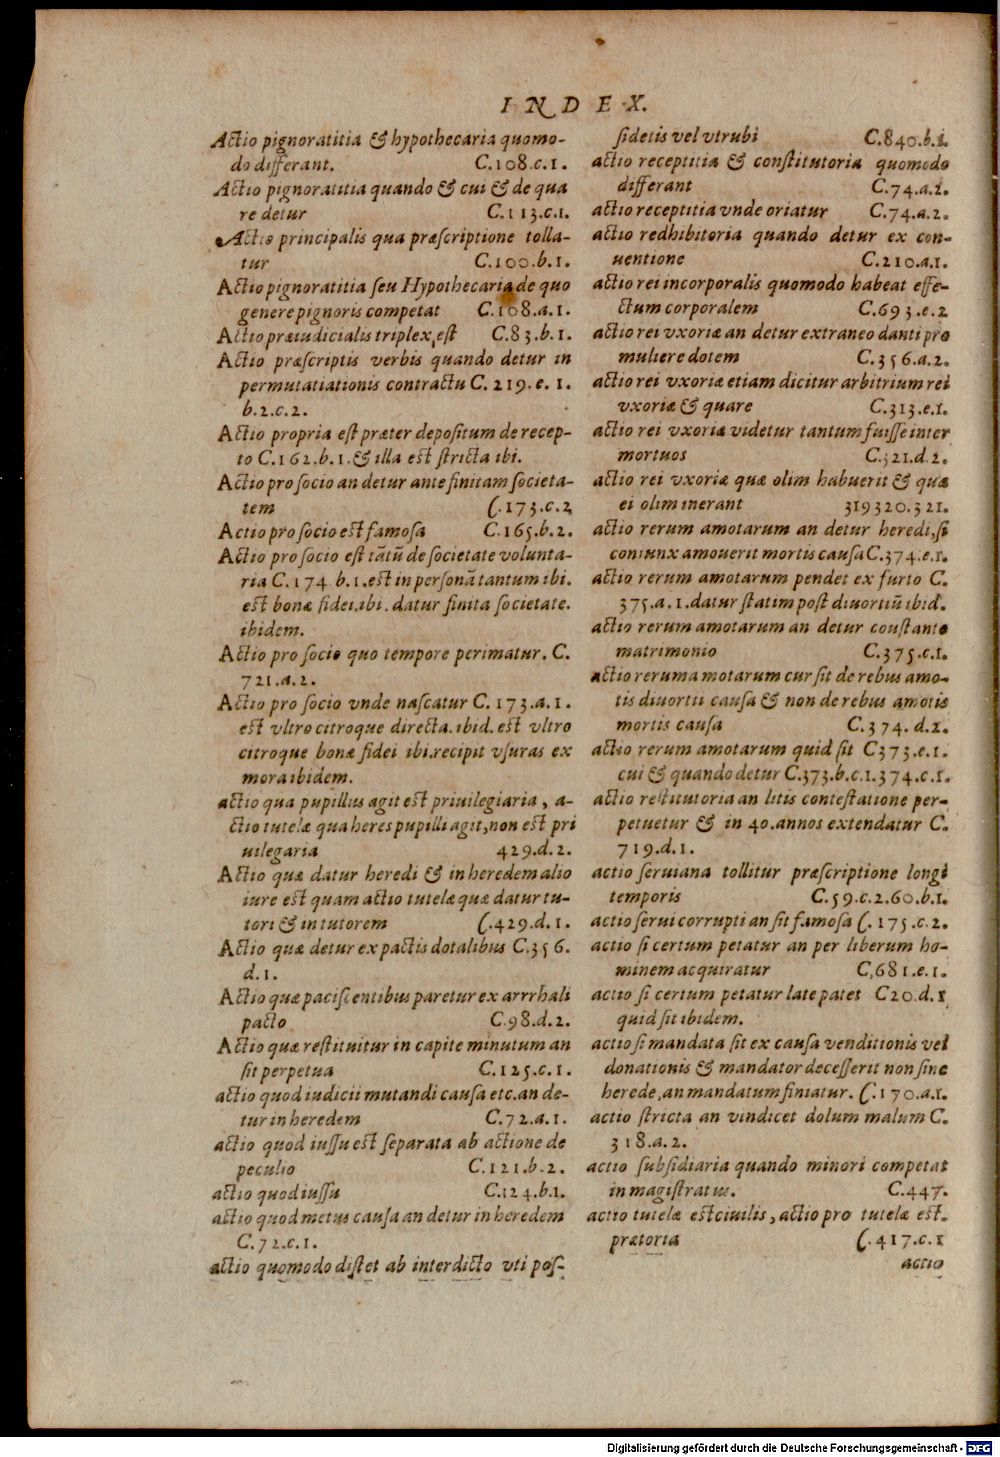 INDEX.
Actio pignoratitia & hypothecaria quomo-
do differant. C.108.c.1.
Actio pignoratitia quando & cui & de qua
re detur C.113.c.1.
Actio principalis qua præscriptione tolla-
tur C.100.b.1.
Actio pignoratitia seu Hypothecaria de quo
genere pignoris competat C.108.a.1.
Actio præiudicialis triplex est C.83.b.1.
Actio præscriptis verbis quando detur in
permutatiationis contractu C.219.e.1.
b.2.c.2.
Actio propria est præter depositum de recep-
to C.162.b.1.& illa est stricta ibi.
Actio pro socio an detur ante finitam societa-
tem C.173.c.2
Actio pro socio est famosa C.165.b.2.
Actio pro socio est tãtũ de societate volunta-
ria C.174 b.1.est in personã tantum ibi.
est bonæ fidei.ibi. datur finita societate.
ibidem.
Actio pro socio quo tempore perimatur. C.
721.a.2.
Actio pro socio vnde nascatur C.173.a.1.
est vltro citroque directa.ibid.est vltro
citroque bonæ fidei ibi.recipit vsuras ex
mora ibidem.
actio qua pupillus agit est priuilegiaria, a-
ctio tutelæ qua heres pupilli agit,non est pri
uilegaria 429.d.2.
Actio quæ datur heredi & in heredem alio
iure est quam actio tutelæ quæ datur tu-
tori & in tutorem C.429.d.1.
Actio quæ detur ex pactis dotalibus C.356.
d.1.
Actio quæ paciscentibus paretur ex arrrhali
pacto C.98.d.2.
Actio quæ restituitur in capite minutum an
sit perpetua C.125.c.1.
actio quod iudicii mutandi causa etc.an de-
tur in heredem C.72.a.1.
actio quod iussu est separata ab actione de
peculio C.121.b.2.
actio quod iussu C.124.b.1.
actio quod metus causa an detur in heredem
C.72.c.1.
actio quomodo distet ab interdicto vti pos-
sidetis vel vtrubi C.840.b.1.
actio receptitia & constitutoria quomodo
differant C.74.a.2.
actio receptitia vnde oriatur C.74.a.2.
actio redhibitoria quando detur ex con-
uentione C.210.a.1.
actio rei incorporalis quomodo habeat effe-
ctum corporalem C.693.e.2
actio rei vxoriæ an detur extraneo danti pro
muliere dotem C.356.a.2.
actio rei vxoriæ etiam dicitur arbitrium rei
vxoriæ & quare C.313.e.1.
actio rei vxoriæ videtur tantum fuisse inter
mortuos C.321.d.2.
actio rei vxoriæ quæ olim habuerit & quæ
ei olim inerant 319320.321.
actio rerum amotarum an detur heredi,si
coniunx amouerit mortis causa C.374.e.1.
actio rerum amotarum pendet ex furto C.
375.a.1.datur statim post diuortiũ ibid.
actio rerum amotarum an detur constante
matrimonio C.375.c.1.
actio reruma motarum cur sit de rebus amo-
tis diuortii causa & non de rebus amotis
mortis causa C.374.d.2.
actio rerum amotarum quid sit C373.e.1.
cui & quando detur C.373.b.c.1.374.c.1.
actio restitutoria an litis contestatione per-
petuetur & in 40.annos extendatur C.
719.d.1.
actio seruiana tollitur præscriptione longi
temporis C.59.c.2.60.b.1.
actio serui corrupti an sit famosa C.175.c.2.
actio si certum petatur an per liberum ho-
minem acquiratur C,681.e.1.
actio si certum petatur late patet C20.d.1
quid sit ibidem.
actio si mandata sit ex causa venditionis vel
donationis & mandator decesserit non sine
herede,an mandatum finiatur. C.170.a.1.
actio stricta an vindicet dolum malum C.
318.a.2.
actio subsidiaria quando minori competat
in magistratus. C.447.
actio tutelæ est ciuilis, actio pro tutelæ est.
prætoria C.417.c.1
actio
Digitalisierung gefördert durch die Deutsche Forschungsgemeinschaft - DFG